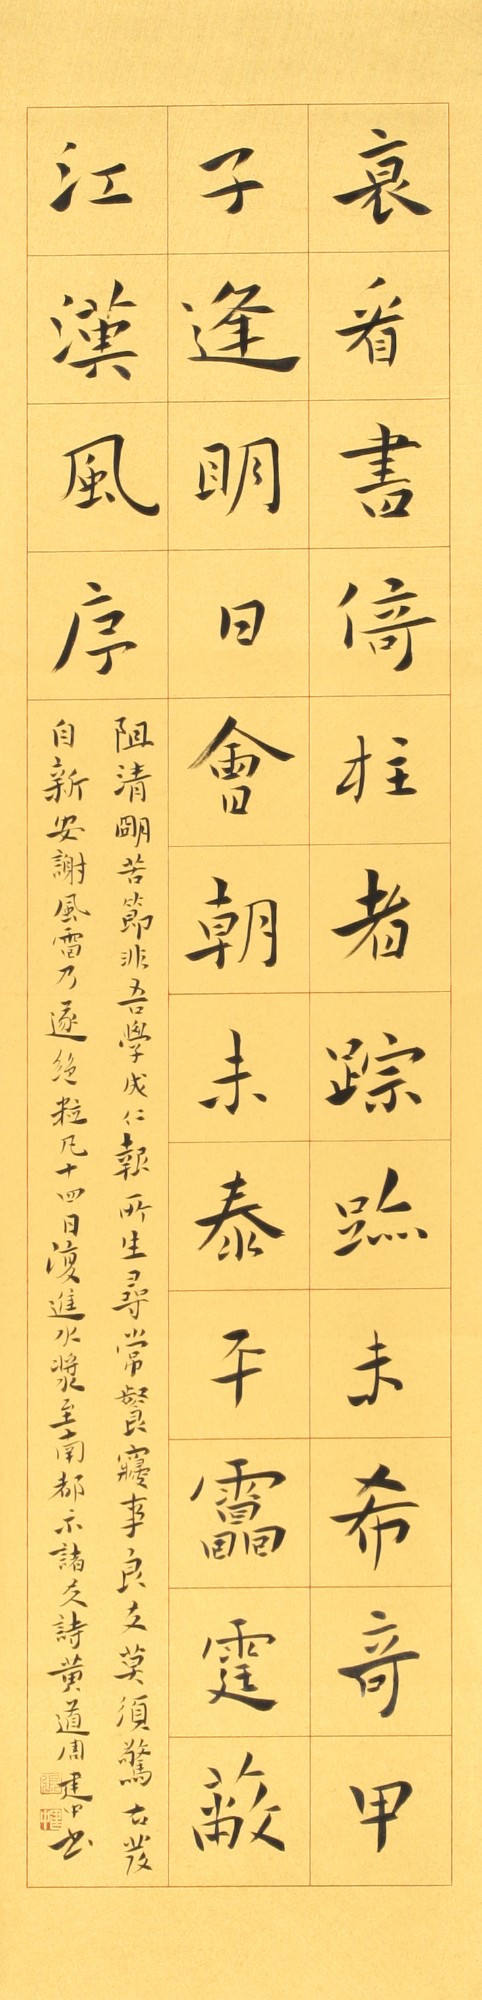 哀看書倚柱者踪跡未希奇甲
子逢明日會朝未泰平靁霆蔽
江漢風序
阻清明苦節非吾學成仁報所生尋常餐寢事良友莫須驚古發
自新安謝風雷乃遂絕粒凡十四日復進水漿至南都示諸友詩黃道周建中書